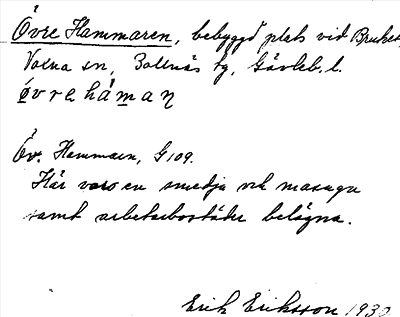 Övre Hammaren, bebyggd plats vid Bruket,
Voxna sn, Bollnäs tg, Gävleb. l.
övreháman
Öv. Hammaren, G109.
Här voro en smedja och masugn
samt arbetarbostäder belägna.
Erik Eriksson 1930